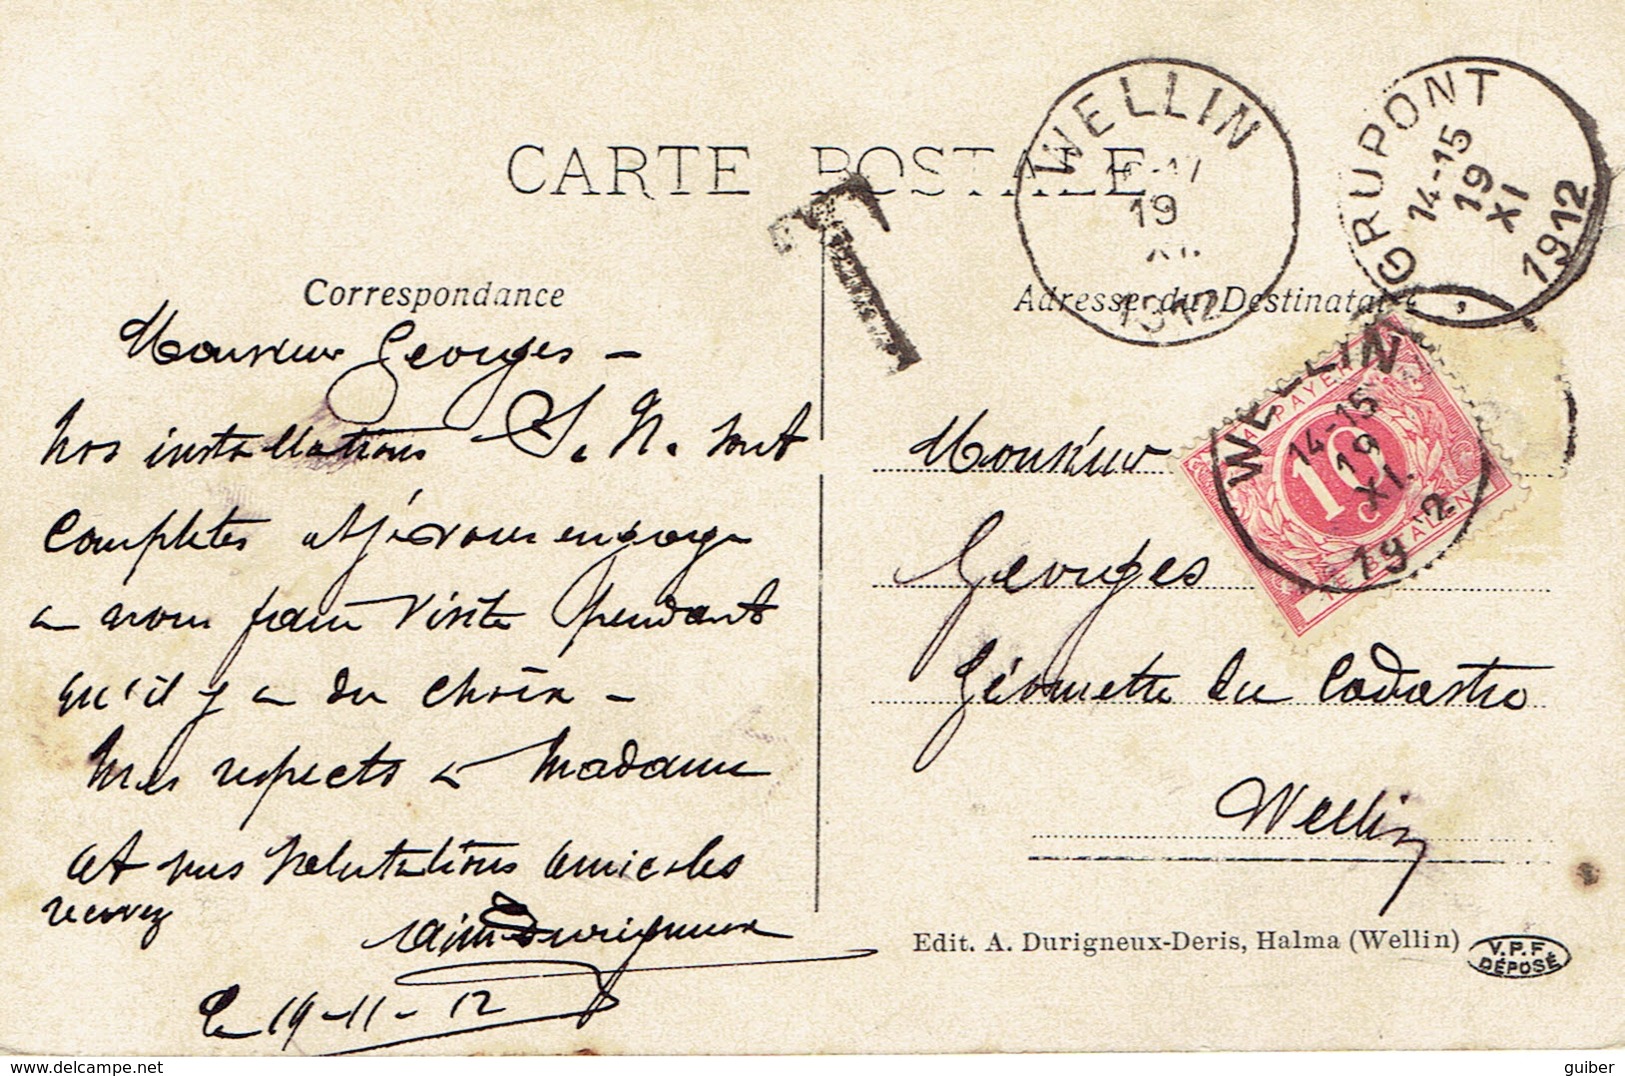 CARTE POSTALE
T
WELLIN
19
XI.
1912
GRUPONT
14-15
19
XI
1912
Correspondance
Adresse du Destinataire
Monsieur Georges –
Nos installations S. N. sont
complètes et je vous engage
a nous faire visite pendant
qu'il y a du choix –
Mes respects a Madame
et mes salutations amicales
recevez
Le 19-11-12
WELLIN
14-15
19
XI.
19 2
A PAYER
10
TE BETALEN
Monsieur
Georges
Géomettre du Cadastre
Wellin
Edit. A. Durigneux-Deris, Halma (Wellin)
V.P.F.
DÉPOSÉ
guiber